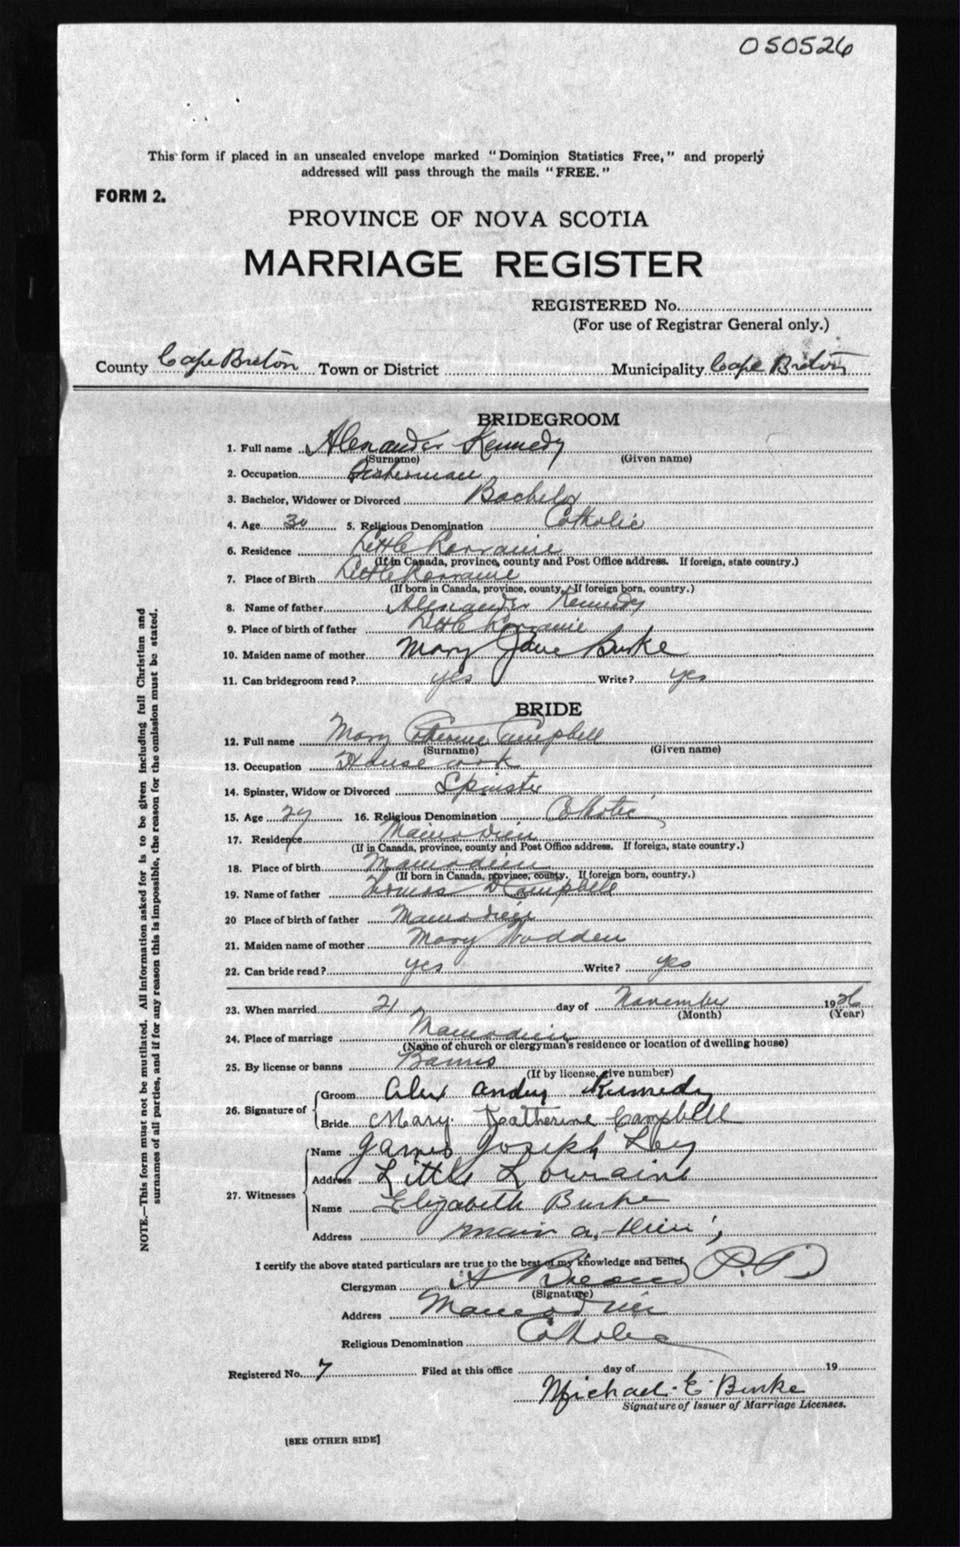 050526
This form if placed in an unsealed envelope marked "Dominion Statistics Free," and properly
addressed will pass through the mails "FREE."
FORM 2.
PROVINCE OF NOVA SCOTIA
MARRIAGE REGISTER
REGISTERED No.
(For use of Registrar General only.)
County Cape Breton Town or District Municipality Cape Breton
BRIDEGROOM
1. Full name Alexander Kennedy
(Surname) (Given name)
2. Occupation Fisherman
3. Bachelor, Widower or Divorced Bachelor
4. Age 30 5. Religious Denomination Catholic
6. Residence Little Lorraine
(If in Canada, province, county and Post Office address. If foreign, state country.)
7. Place of Birth Little Lorraine
(If born in Canada, province, county. If foreign born, country.)
8. Name of father Alexander Kennedy
9. Place of birth of father Little Lorraine
10. Maiden name of mother Mary Jane Burke
11. Can bridegroom read? yes Write? yes
BRIDE
12. Full name Mary Catherine Campbell
(Surname) (Given name)
13. Occupation House work
14. Spinster, Widow or Divorced Spinster
15. Age 27 16. Religious Denomination Catholic
17. Residence Mainadieu
(If in Canada, province, county and Post Office address. If foreign, state country.)
18. Place of birth Mainadieu
(If born in Canada, province, county. If foreign born, country.)
19. Name of father Thomas D Campbell
20 Place of birth of father Mainadieu
21. Maiden name of mother Mary Wadden
22. Can bride read? yes Write? yes
23. When married 21 day of November 1926
(Month) (Year)
24. Place of marriage Mainadieu
(Name of church or clergyman's residence or location of dwelling house)
25. By license or banns Banns
(If by license, give number)
26. Signature of
Groom Alex Kennedy
Bride Mary Katherine Campbell
27. Witnesses
Name James Joseph Ley
Address Little Lorraine
Name Elizabeth Burke
Address main a. dieu
I certify the above stated particulars are true to the best of my knowledge and belief,
Clergyman P.P.
(Signature)
Address Mainadieu
Religious Denomination Catholic
Registered No. 7 Filed at this office day of 19
Michael E Burke
Signature of Issuer of Marriage Licenses.
[SEE OTHER SIDE]
NOTE.—This form must not be mutilated. All information asked for is to be given including full Christian and
surnames of all parties, and if for any reason this is impossible, the reason for the omission must be stated.